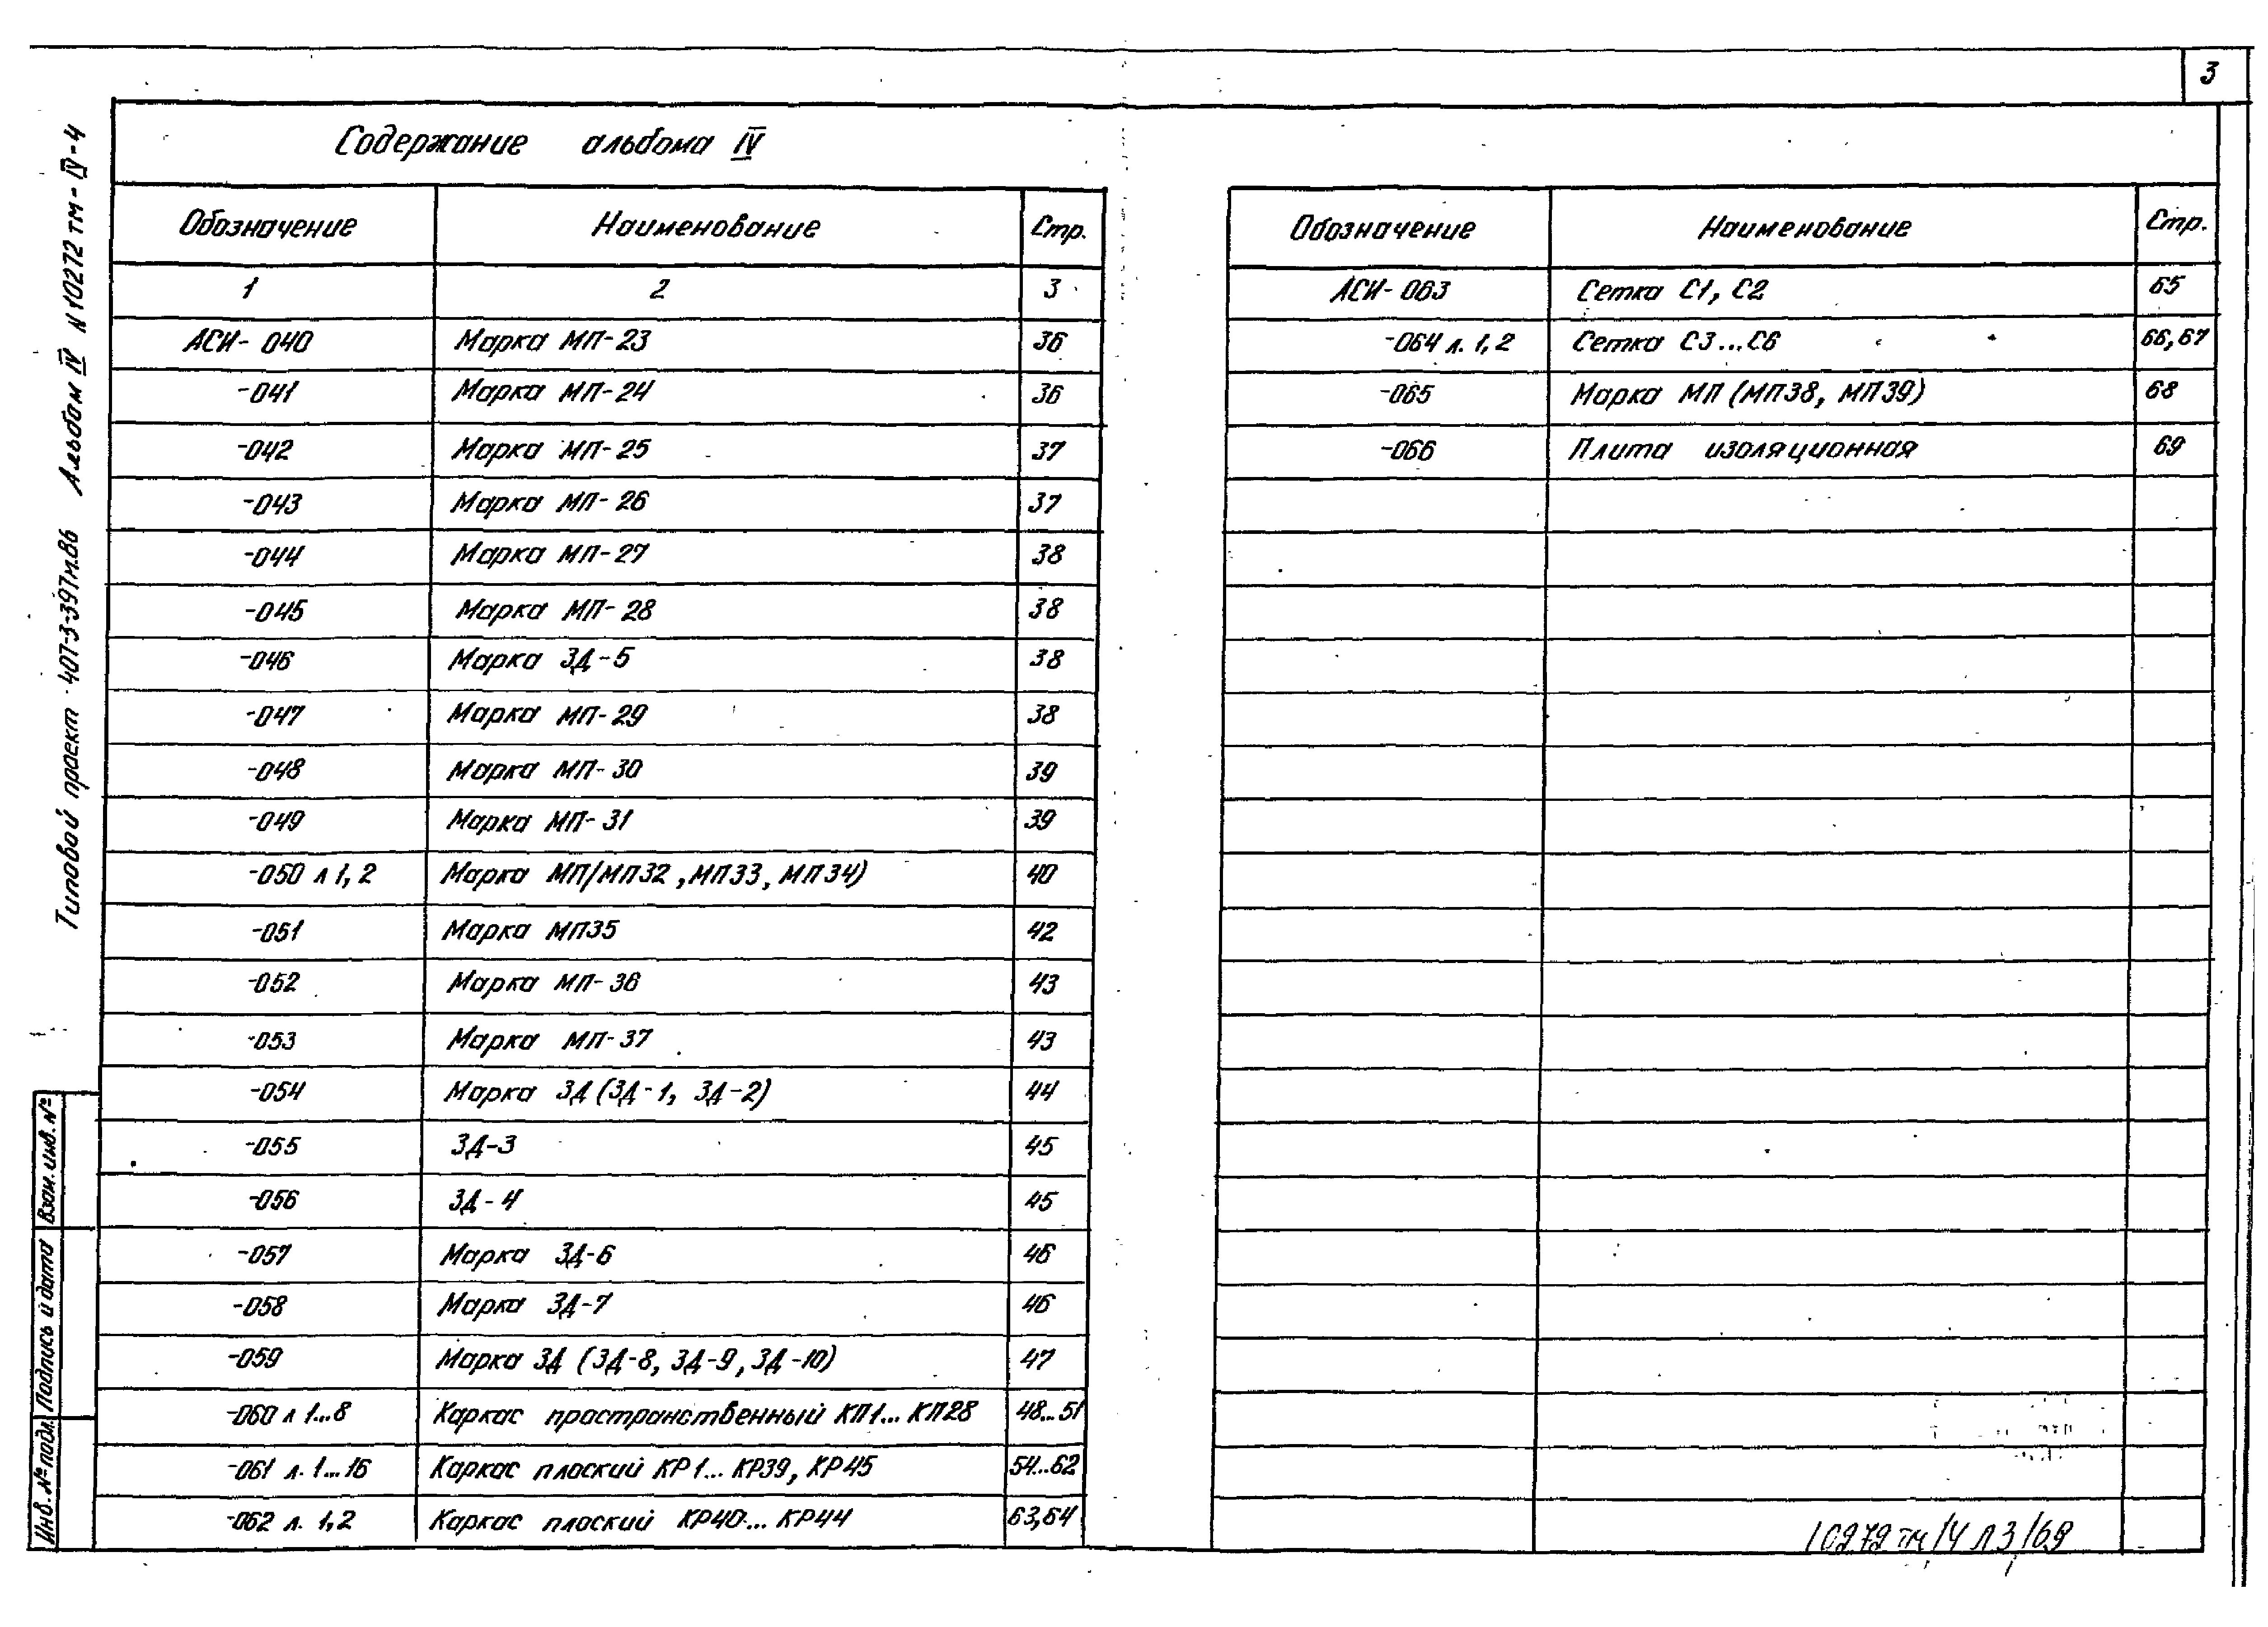 3
Содержание альбома IV
Обозначение Наименование Стр.
1 2 3
АСИ- 040 Марка МП-23 36
-041 Марка МП-24 36
-042 Марка МП-25 37
-043 Марка МП-26 37
-044 Марка МП-27 38
-045 Марка МП-28 38
-046 Марка ЗД-5 38
-047 Марка МП-29 38
-048 Марка МП-30 39
-049 Марка МП-31 39
-050 л 1, 2 Марка МП/МП32, МП33, МП34) 40
-051 Марка МП35 42
-052 Марка МП-36 43
-053 Марка МП-37 43
-054 Марка ЗД (ЗД-1, ЗД-2) 44
-055 ЗД-3 45
-056 ЗД-4 45
-057 Марка ЗД-6 46
-058 Марка ЗД-7 46
-059 Марка ЗД (ЗД-8, ЗД-9, ЗД-10) 47
-060 л 1...8 Каркас пространственный КП1... КП28 48...51
-061 л. 1...16 Каркас плоский КР1... КР39, КР45 54...62
-062 л. 1,2 Каркас плоский КР40... КР44 63,64
Обозначение Наименование Стр.
АСИ- 063 Сетка С1, С2 65
-064 л. 1, 2 Сетка С3...С6 66, 67
-065 Марка МП (МП38, МП39) 68
-066 Плита изоляционная 69
Типовой проект 407-3-397м.86 Альбом IV N 10272 тм-IV-4
Взам. инв. №
Подпись и дата
Инв. № подл.
10272 тм/4 л 3/69